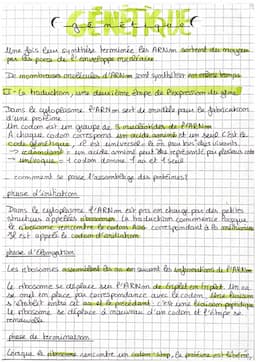 GÉNÉTIQUE
Une fois leur synthèse terminée les ARNm sortent du noyau
par les pores de l'enveloppe nucléaire
De nombreuses molécules d'ARNm sont synthétisées en même temps
- La traduction, une deuxième étape de l'expression du gène
Dans le cytoplasme l'ARNm sert de modèle pour la fabrication
d'une protéine
Un codon est un groupe de 3 nucléotides de l'ARNm
A chaque codon correspond un acide aminé et un seul C'est le
code génétique, il est universel
→ un acide aminé peut être représenté par plusieurs codons
→ univoque = 1 codon donne 1 aa et 1 seul
comment se passe l'assemblage des protéines?
phase d'initiation
Dans le cytoplasme l'ARNm est pris en charge par des petites
structures appelées ribosomes. La traduction commence lorsque
le ribosome rencontre le codon AUG correspondant à la méthionine
Il est appelé le codon d'initiation
phase d'élongation
Les ribosomes assemblent les aa en suivant les informations de l'ARNm
Le ribosome se déplace sur l'ARNm de triplet en triplet. Un aa
se met en place, par correspondance avec le codon. Une liaison
s'établit entre cet aa et le précédent: c'est une liaison peptidique
le ribosome se déplace à nouveau d'un codon et l'étape se
renouvelle
phase de terminaison
Lorsque le ribosome rencontre un codon-stop, la protéine est libérée,